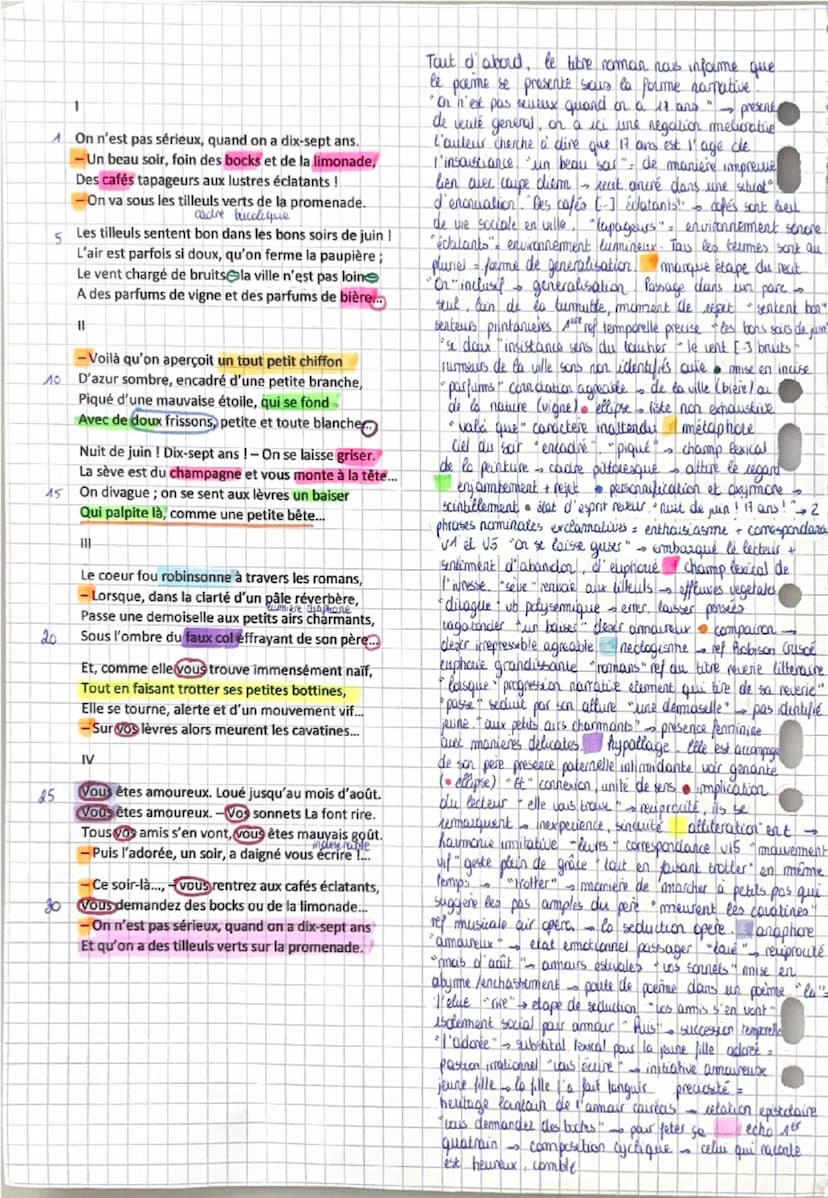 I
1 On n'est pas sérieux, quand on a dix-sept ans.
– Un beau soir, foin des bocks et de la limonade,
Des cafés tapageurs aux lustres éclatants !
– On va sous les tilleuls verts de la promenade.
cadre bucolique
5 Les tilleuls sentent bon dans les bons soirs de juin !
L'air est parfois si doux, qu'on ferme la paupière ;
Le vent chargé de bruits – la ville n'est pas loin –
A des parfums de vigne et des parfums de bière...
II
– Voilà qu'on aperçoit un tout petit chiffon
10 D'azur sombre, encadré d'une petite branche,
Piqué d'une mauvaise étoile, qui se fond
Avec de doux frissons, petite et toute blanche...
Nuit de juin ! Dix-sept ans ! – On se laisse griser.
La sève est du champagne et vous monte à la tête...
15 On divague ; on se sent aux lèvres un baiser
Qui palpite là, comme une petite bête...
III
Le coeur fou robinsonne à travers les romans,
– Lorsque, dans la clarté d'un pâle réverbère,
lumière diaphane
Passe une demoiselle aux petits airs charmants,
20 Sous l'ombre du faux col effrayant de son père...
Et, comme elle vous trouve immensément naïf,
Tout en faisant trotter ses petites bottines,
Elle se tourne, alerte et d'un mouvement vif...
– Sur vos lèvres alors meurent les cavatines...
IV
25 Vous êtes amoureux. Loué jusqu'au mois d'août.
Vous êtes amoureux. – Vos sonnets La font rire.
Tous vos amis s'en vont, vous êtes mauvais goût.
– Puis l'adorée, un soir, a daigné vous écrire !...
– Ce soir-là..., – vous rentrez aux cafés éclatants,
30 Vous demandez des bocks ou de la limonade...
– On n'est pas sérieux, quand on a dix-sept ans
Et qu'on a des tilleuls verts sur la promenade.
Tout d'abord, le titre roman nous informe que
le poème se présente sous la forme narrative.
"On n'est pas sérieux quand on a 17 ans" → présent
de vérité general, on a ici une négation méliorative
l'auteur cherche à dire que 17 ans est l'age de
l'insouciance "un beau soir" = de manière imprecise
lien avec carpe diem → recit ancré dans une situat°
d'enonciation. "Des cafés [-] éclatants" → cafés sont lieu
de vie sociale en ville. "tapageurs" = environnement sonore
"éclatants" = environnement lumineux. Tous les termes sont au
pluriel = forme de generalisation. marque étape du recit
"On" inclusif → generalisation. Passage dans un parc →
seul, loin de la tumulte, moment de répit "sentent bon"
senteurs printanieres 1ere ref temporelle precise "les bons soirs de juin"
"si doux" insistance sens du toucher "le vent [-] bruits"
rumeurs de la ville sons non identifiés ouie • mise en incise
"parfums" connotation agreable → de la ville (bière) ou
de la nature (vigne) • ellipse → liste non exhaustive
"voilà que" caractère inattendu métaphore
ciel du soir "encadré" "piqué" → champ lexical
de la peinture → cadre pittoresque → attire le regard
enjambement + rejet • personnification et oxymore →
scintillement • état d'esprit reveur. "nuit de juin ! 17 ans !" → 2
phrases nominales exclamatives = enthousiasme + correspondance
v1 et v5 "on se laisse griser" → embarque le lecteur +
sentiment d'abandon, d'euphorie champ lexical de
l'ivresse. "sève" renvoie aux tilleuls → effluves vegetales
"divague" vb polysemique → errer, laisser pensées
vagabonder "un baiser" désir amoureux • comparaison →
désir irrepressible agreable neologisme → ref Robison Crusoé
euphorie grandissante "romans" ref au titre reverie litteraire
"lorsque" progression narrative element qui tire de sa reverie
"passe" séduit par son allure "une demoiselle" → pas identifié
jeune. "aux petits airs charmants" → présence feminine
avec manières delicates hypallage. Elle est accompagné
de son père presence paternelle intimidante voir genante
(• ellipse) "Et" connexion, unité de sens • implication
du lecteur "elle vous trouve" → reciprocité, ils se
remarquent → inexperience, sincerité alliteration en t →
harmonie imitative "levres" correspondance v15 "mouvement
vif" geste plein de grâce "tout en faisant trotter" en même
temps → "trotter" → manière de marcher à petits pas qui
suggère les pas amples du père "meurent les cavatines"
ref musicale air opera → la seduction opere. anaphore
"amoureux" → état emotionnel passager "loué" → reciprocité
"mois d'août" → amours estivales "vos sonnets" mise en
abyme / enchassement → poète de poème dans un poème "la" =
l'élue "rire" → étape de séduction "vos amis s'en vont"
isolement social par amour "Puis" → succession temporelle
"l'adorée" → substitut lexical pour la jeune fille adoree =
passion irrationnel "vous écrire" → initiative amoureuse
jeune fille → la fille l'a fait languir preciosité =
heritage lointain de l'amour courtois → relation epistolaire
"vous demandez des bocks" → pour feter ça echo 1er
quatrain → composition cyclique → celui qui raconte
est heureux, comblé